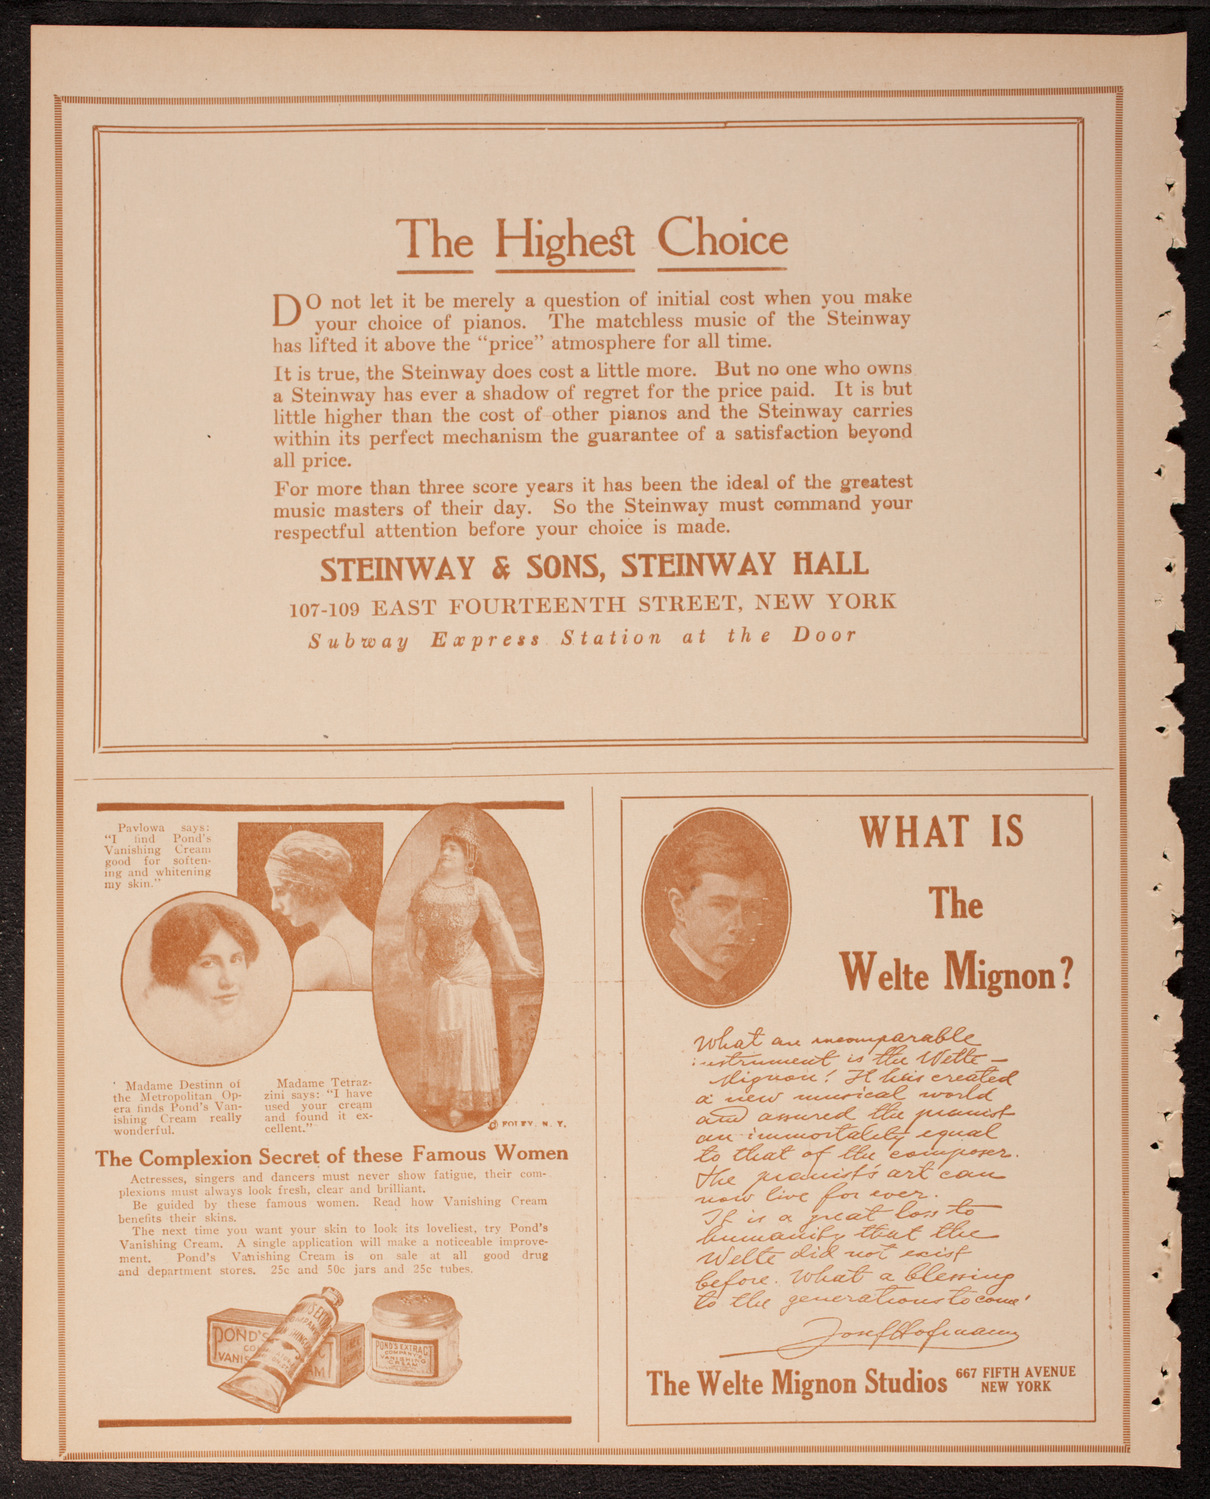 The Highest Choice
DO not let it be merely a question of initial cost when you make
your choice of pianos. The matchless music of the Steinway
has lifted it above the "price" atmosphere for all time.
It is true, the Steinway does cost a little more. But no one who owns
a Steinway has ever a shadow of regret for the price paid. It is but
little higher than the cost of other pianos and the Steinway carries
within its perfect mechanism the guarantee of a satisfaction beyond
all price.
For more than three score years it has been the ideal of the greatest
music masters of their day. So the Steinway must command your
respectful attention before your choice is made.
STEINWAY & SONS, STEINWAY HALL
107-109 EAST FOURTEENTH STREET, NEW YORK
Subway Express Station at the Door
Pavlowa says:
"I find Pond's
Vanishing Cream
good for soften-
ing and whitening
my skin."
Madame Destinn of
the Metropolitan Op-
era finds Pond's Van-
ishing Cream really
wonderful.
Madame Tetraz-
zini says: "I have
used your cream
and found it ex-
cellent."
© FOLEY, N. Y.
The Complexion Secret of these Famous Women
Actresses, singers and dancers must never show fatigue, their com-
plexions must always look fresh, clear and brilliant.
Be guided by these famous women. Read how Vanishing Cream
benefits their skins.
The next time you want your skin to look its loveliest, try Pond's
Vanishing Cream. A single application will make a noticeable improve-
ment. Pond's Vanishing Cream is on sale at all good drug
and department stores. 25c and 50c jars and 25c tubes.
POND'S
VANIS
POND'S EXTRACT
COMPANY'S
VANISHING
CREAM
WHAT IS
The
Welte Mignon?
What an incomparable
instrument is the Welte-
Mignon! It has created
a new musical world
and assured the pianist
an immortality equal
to that of the composer.
The pianist's art can
now live for ever.
It is a great loss to
humanity that the
Welte did not exist
before. What a blessing
to the generations to come!
Josef Hofmann
The Welte Mignon Studios 667 FIFTH AVENUE
NEW YORK